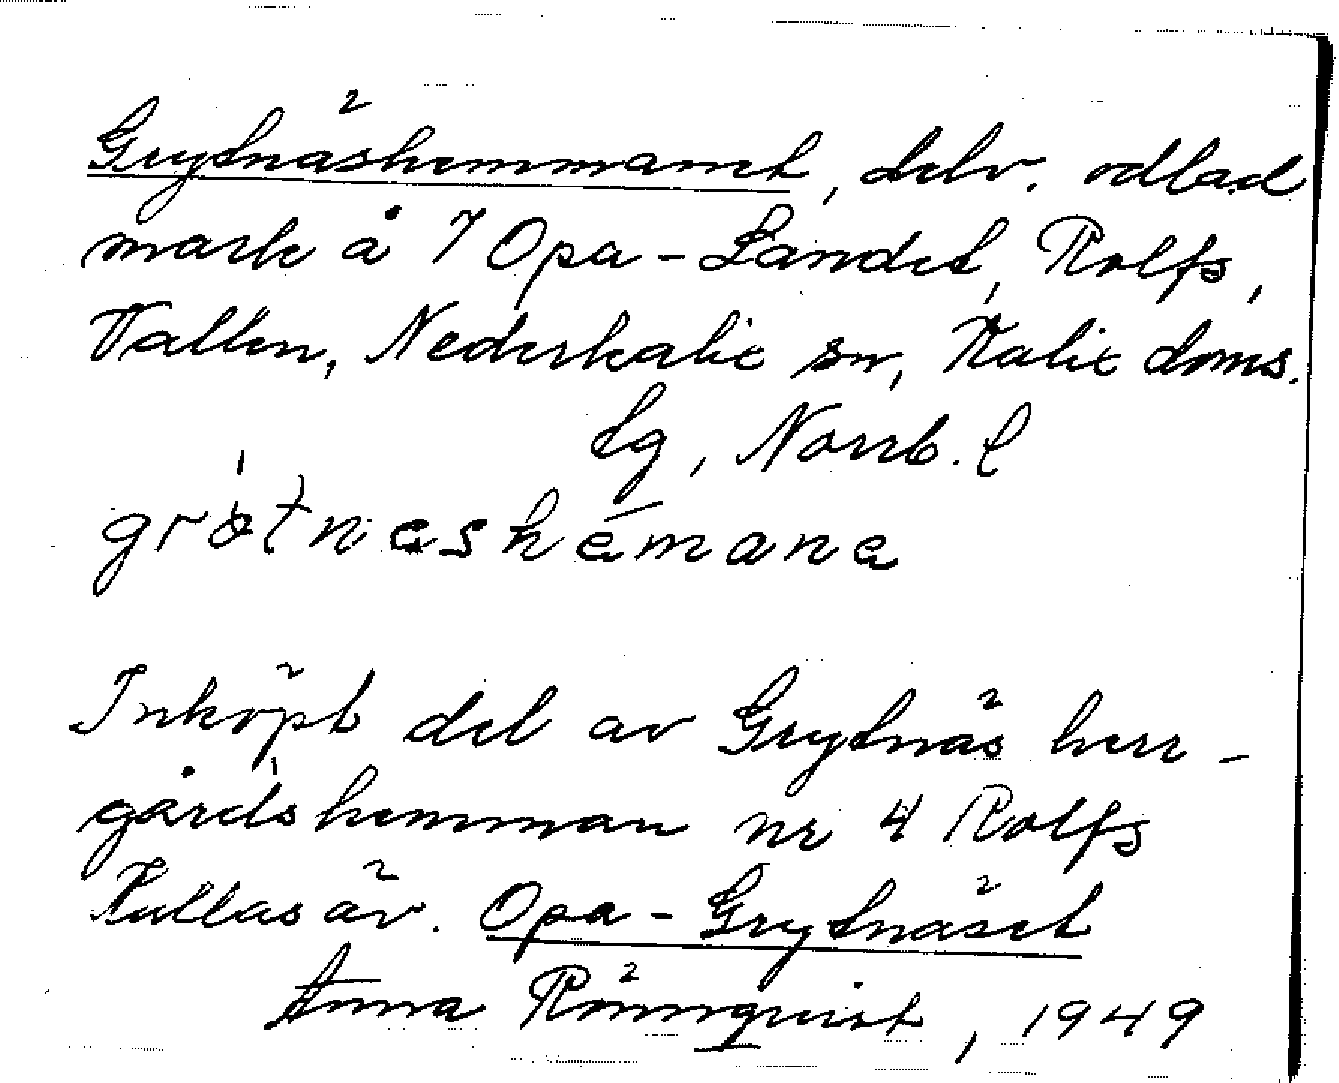 Grytnäshemmanet, delv. odlad
mark å 7 Opa-Landet, Rolfs,
Vallen, Nederkalix sn, Kalix doms.
lg, Norrb. l
Inköpt del av Grytnäs herr-
gårdshemman nr 4 Rolfs
Kallas äv. Opa-Grytnäset
Anna Rönnquist, 1949